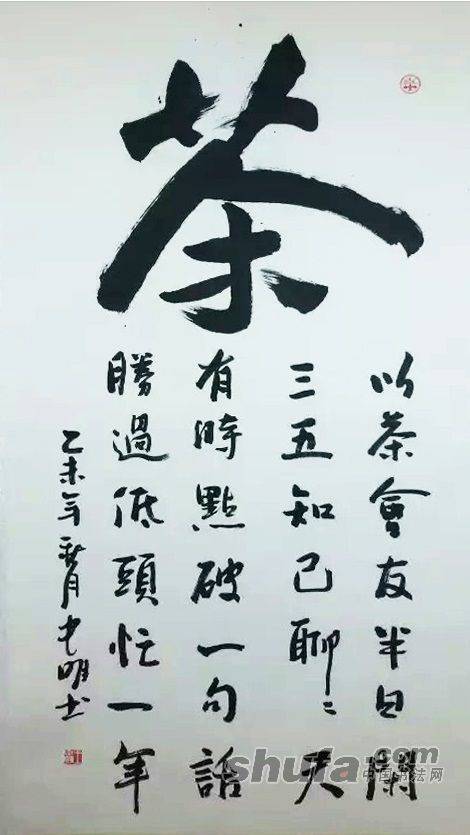 茶
以茶會友半日
三五知己聊〻天
有時點破一句話
勝過低頭忙一年
乙未年月明书
shufa.com
中国书法网